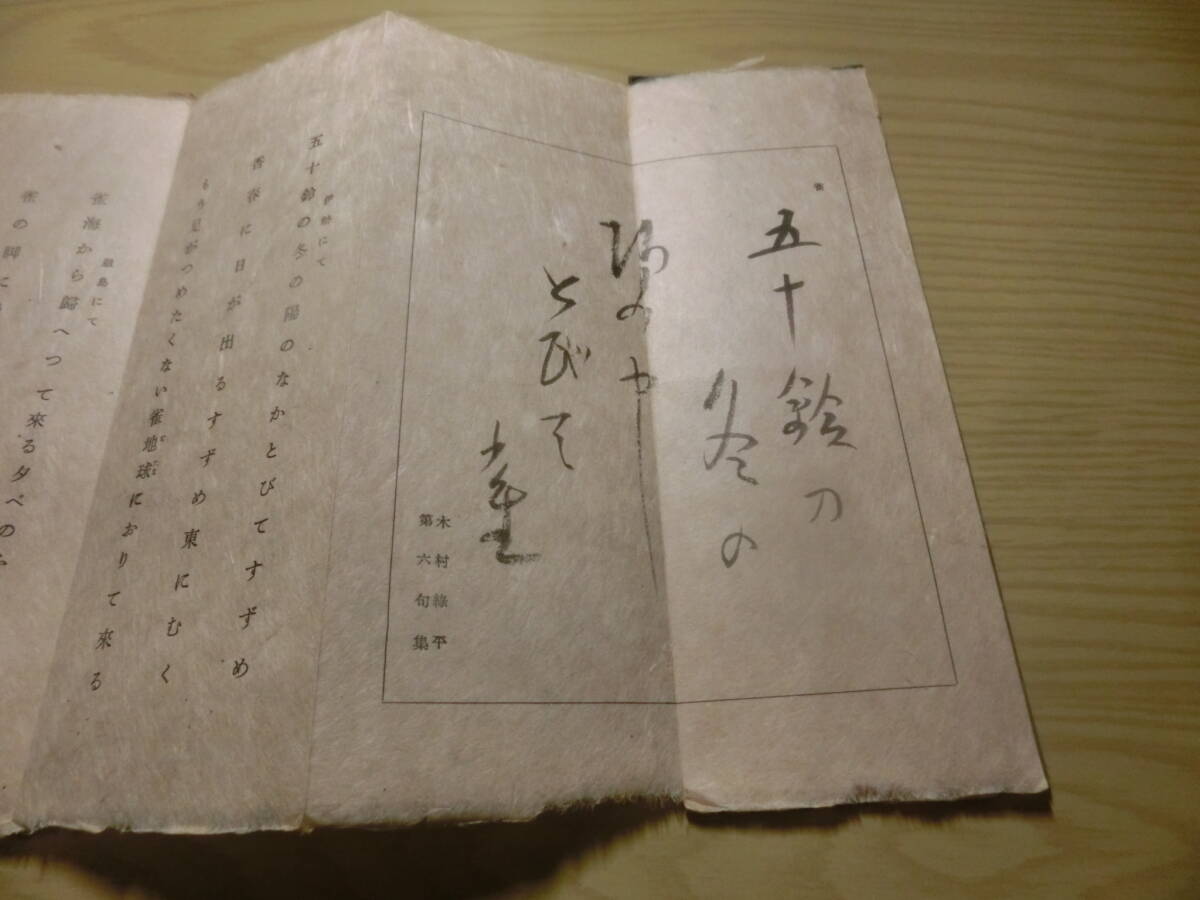 雀
五十鈴の
冬の
陽のなか
とびて
雀
木村綠平
第六句集
伊勢にて
五十鈴の冬の陽のなかとびてすずめ
香春に日が出るすずめ東にむく
もう足がつめたくない雀地球におりて来る
にて
雀海から歸へつて來る夕べの
雀の